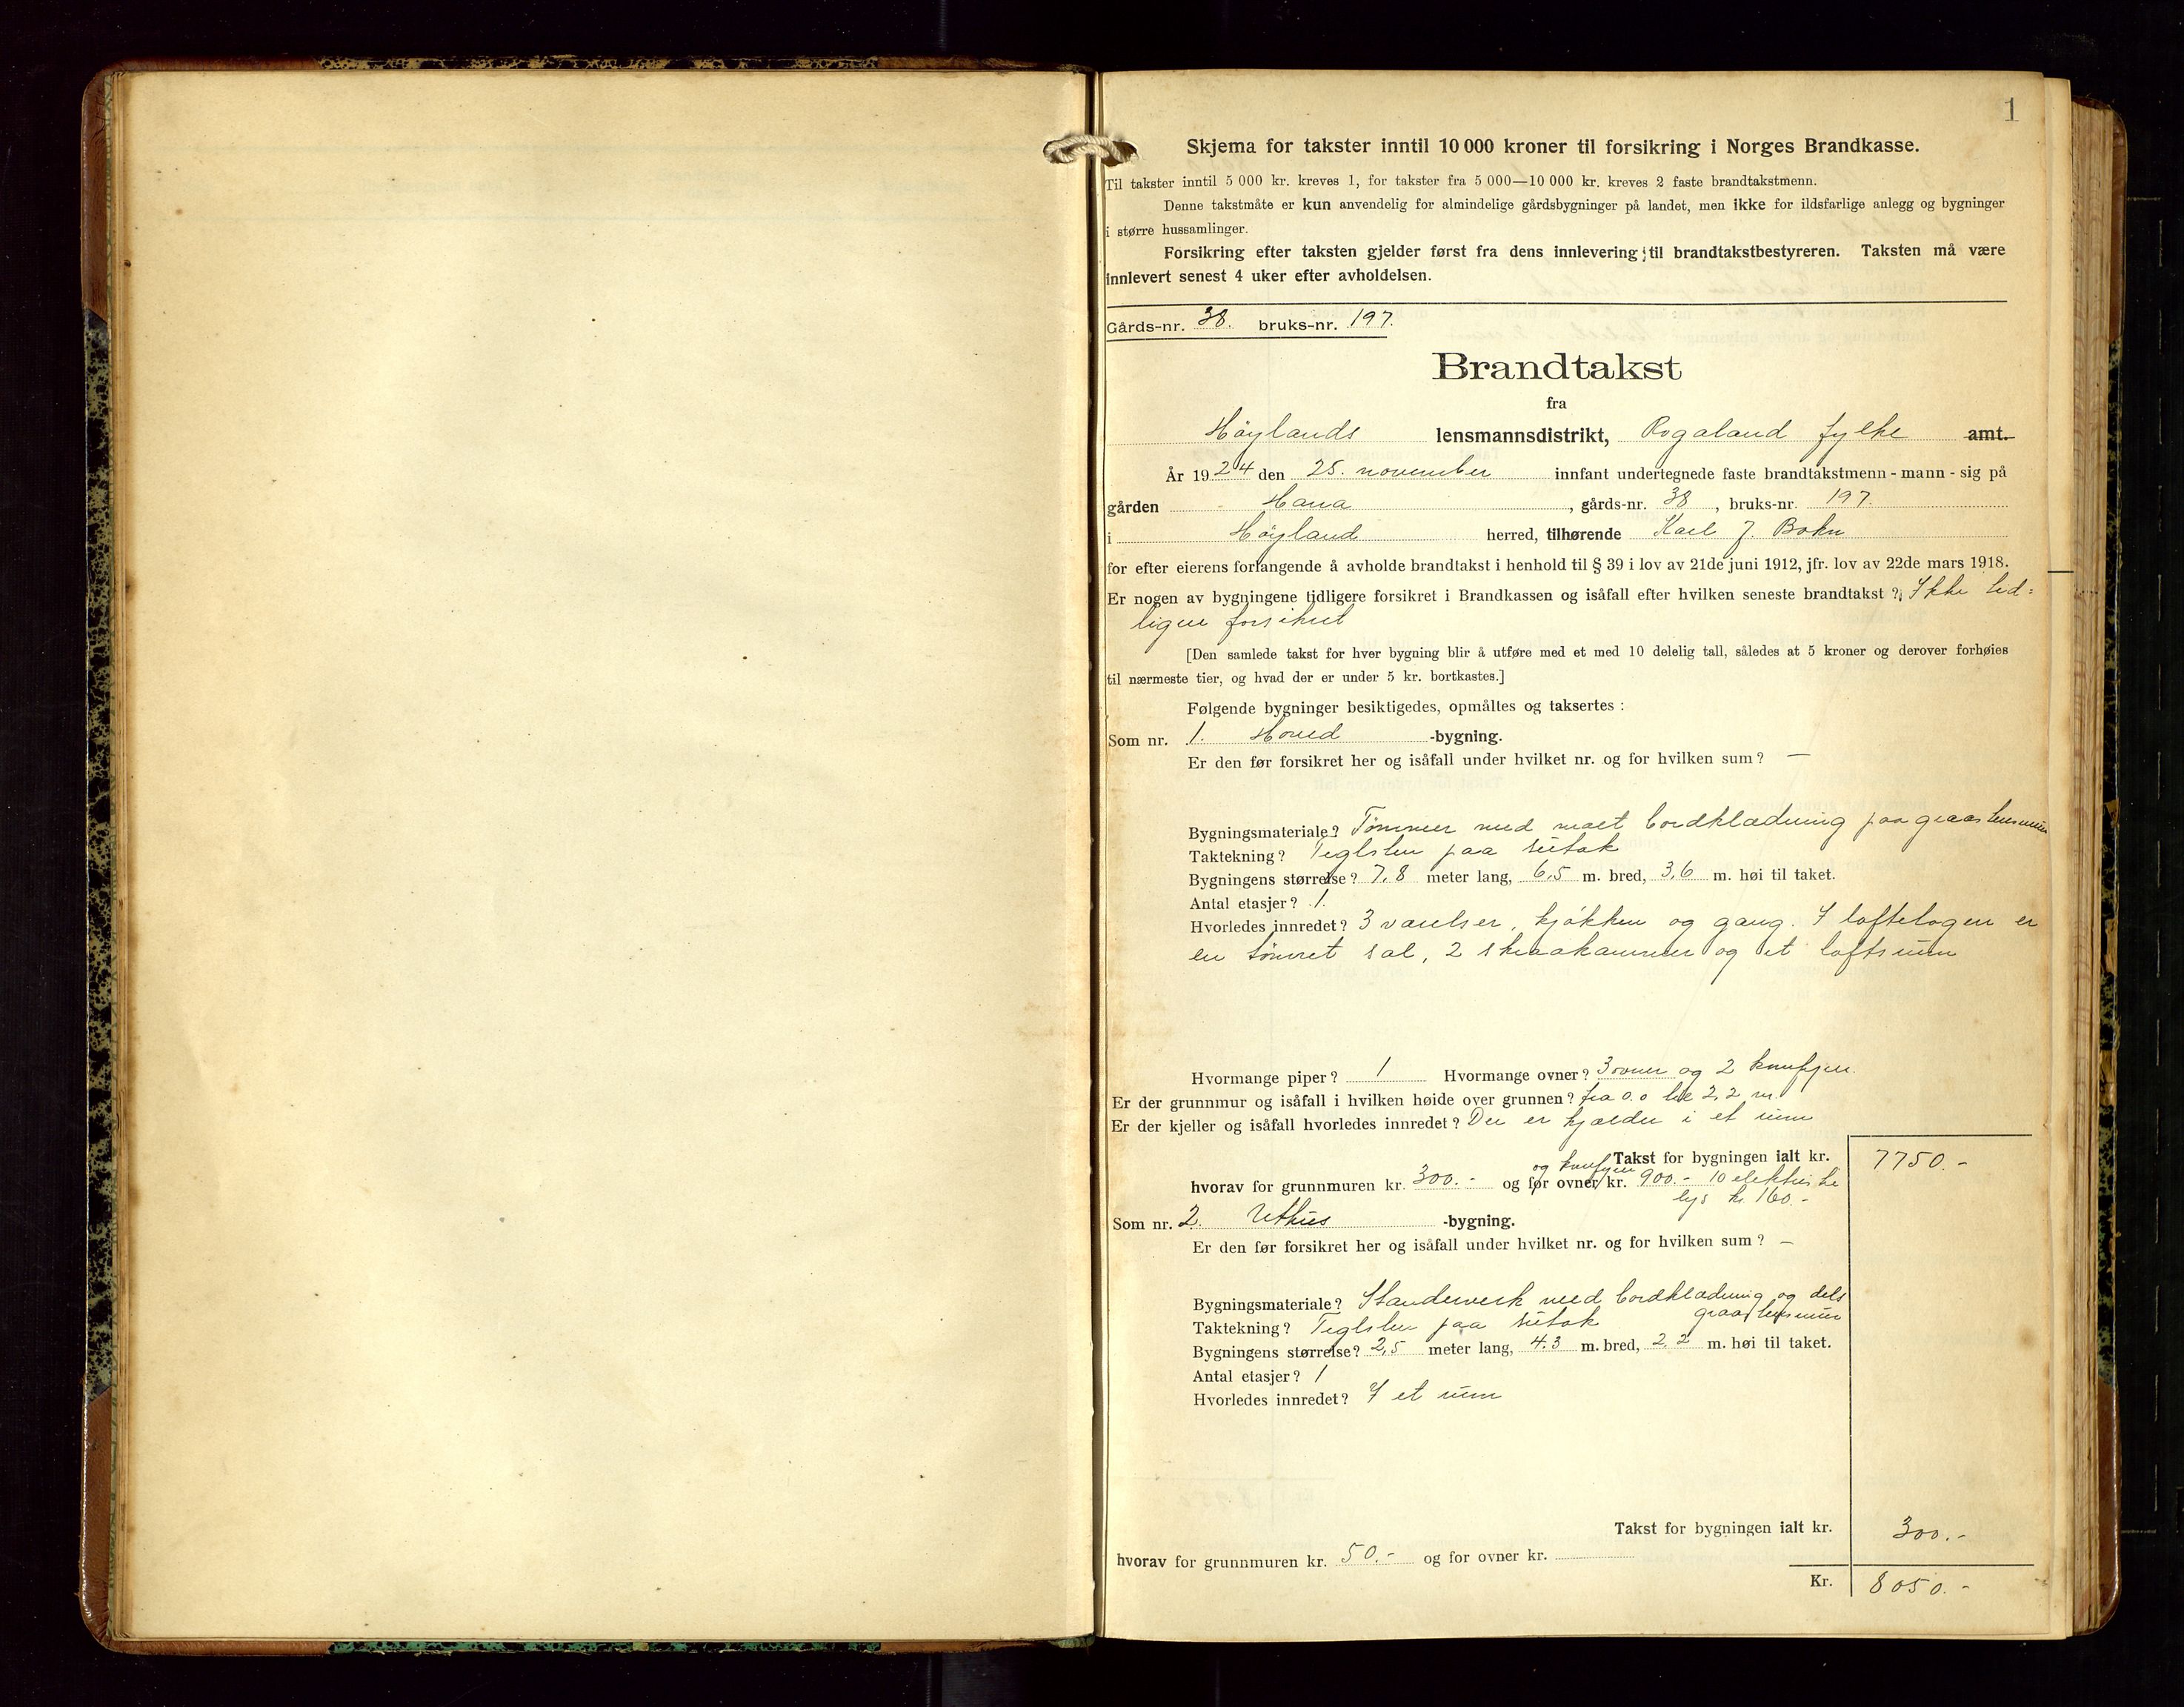 1
Skjema for takster inntil 10 000 kroner til forsikring i Norges Brandkasse.
Til takster inntil 5 000 kr. kreves 1, for takster fra 5 000—10 000 kr. kreves 2 faste brandtakstmenn.
Denne takstmåte er kun anvendelig for almindelige gårdsbygninger på landet, men ikke for ildsfarlige anlegg og bygninger
i større hussamlinger.
Forsikring efter taksten gjelder først fra dens innlevering til brandtakstbestyreren. Taksten må være
innlevert senest 4 uker efter avholdelsen.
Gårds-nr. 38. bruks-nr. 197.
Brandtakst
fra
Høylands lensmannsdistrikt, Rogaland fylke amt.
År 1924 den 25. november innfant undertegnede faste brandtakstmenn - mann - sig på
gården Hana, gårds-nr. 38, bruks-nr. 197.
i Høyland herred, tilhørende Karl J. Bokn
for efter eierens forlangende å avholde brandtakst i henhold til § 39 i lov av 21de juni 1912, jfr. lov av 22de mars 1918.
Er nogen av bygningene tidligere forsikret i Brandkassen og isåfall efter hvilken seneste brandtakst? Ikke tid=
ligere forsikret
[Den samlede takst for hver bygning blir å utføre med et med 10 delelig tall, således at 5 kroner og derover forhøies
til nærmeste tier, og hvad der er under 5 kr. bortkastes.]
Følgende bygninger besiktigedes, opmåltes og taksertes :
Som nr. 1. Hoved -bygning.
Er den før forsikret her og isåfall under hvilket nr. og for hvilken sum? —
Bygningsmateriale? Tømmer med malt bordklædning paa graastensmur
Taktekning? Teglsten paa sutak
Bygningens størrelse? 7,8 meter lang, 6,5 m. bred, 3,6 m. høi til taket.
Antal etasjer? 1.
Hvorledes innredet? 3 værelser, kjøkken og gang. I loftetagen er
en tømret sal, 2 skraakammer og et loftsrum
Hvormange piper? 1 Hvormange ovner? 3 ovner og 2 komfyrer.
Er der grunnmur og isåfall i hvilken høide over grunnen? fra 0.0 til 2,2 m.
Er der kjeller og isåfall hvorledes innredet? Der er kjælder i et rum
Takst for bygningen ialt kr. 7750.-
hvorav for grunnmuren kr. 300.- og for ovner og komfyrer kr. 900.- 10 elektriske
lys kr. 160.-
Som nr. 2. Uthus -bygning.
Er den før forsikret her og isåfall under hvilket nr. og for hvilken sum? —
Bygningsmateriale? Standerverk med bordklædning og dels
graastensmur
Taktekning? Teglsten paa sutak
Bygningens størrelse? 2,5 meter lang, 4.3 m. bred, 2.2 m. høi til taket.
Antal etasjer? 1
Hvorledes innredet? I et rum
Takst for bygningen ialt kr. 300.-
hvorav for grunnmuren kr. 50.- og for ovner kr.
Kr. 8050.-